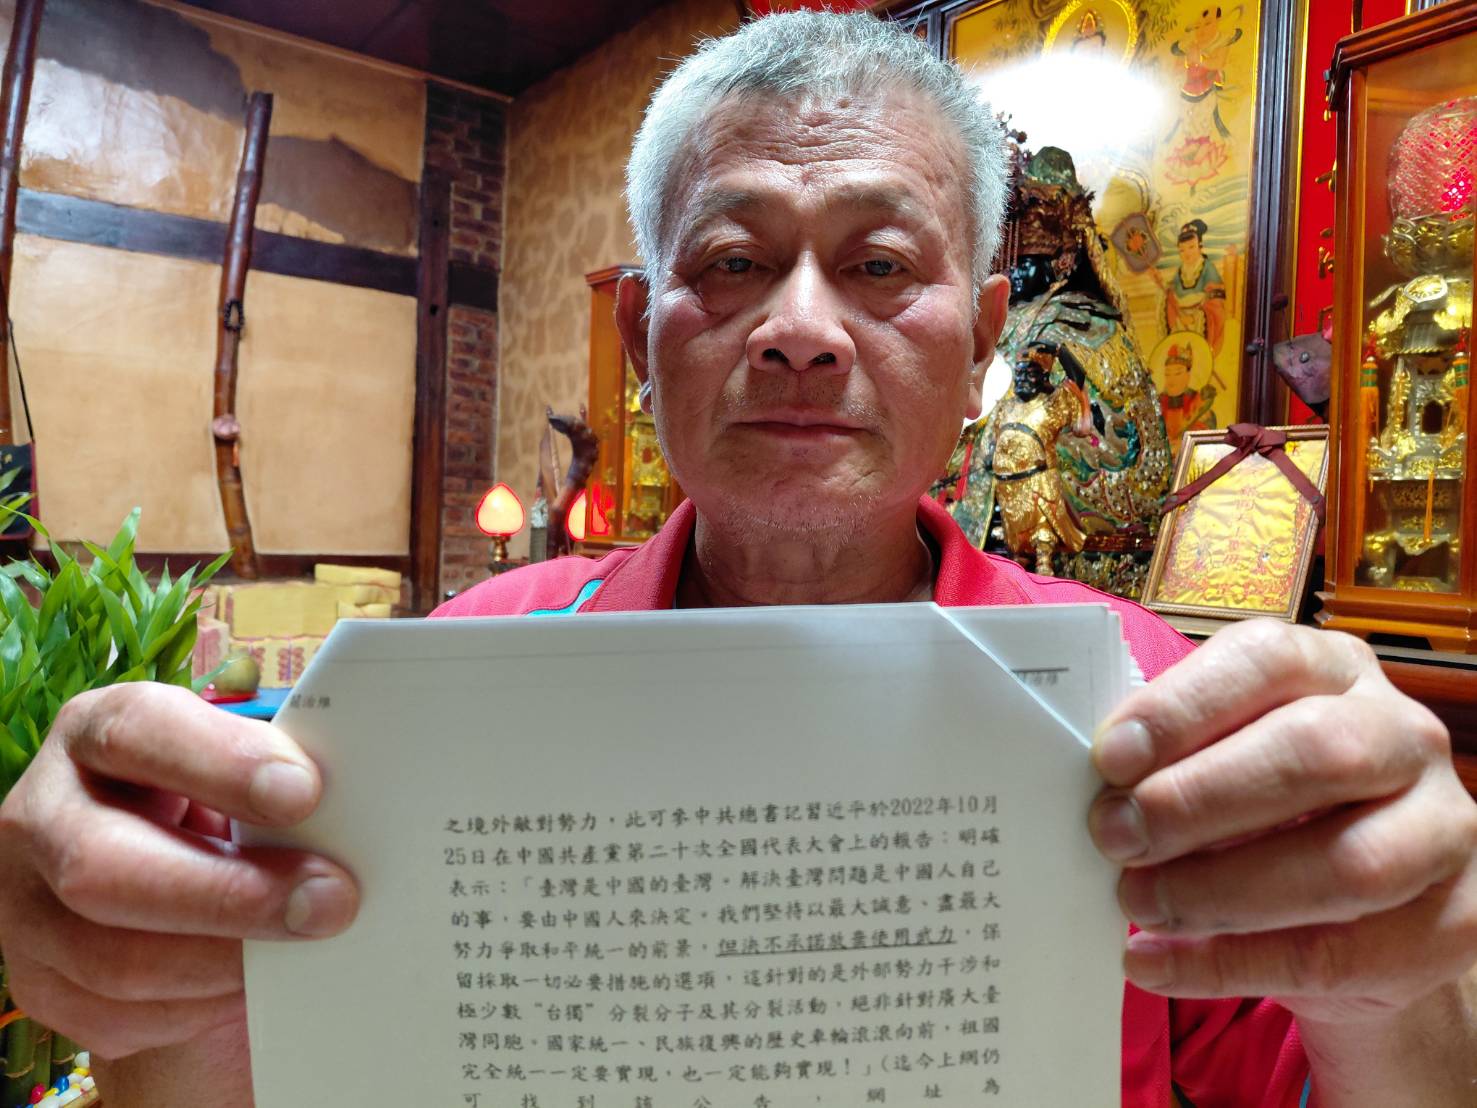 治維
治維
之境外敵對勢力，此可參中共總書記習近平於2022年10月
25日在中國共產黨第二十次全國代表大會上的報告：明確
表示：「臺灣是中國的臺灣。解決臺灣問題是中國人自己
的事，要由中國人來決定。我們堅持以最大誠意、盡最大
努力爭取和平統一的前景，但決不承諾放棄使用武力，保
留採取一切必要措施的選項，這針對的是外部勢力干涉和
極少數“台獨”分裂分子及其分裂活動，絕非針對廣大臺
灣同胞。國家統一、民族復興的歷史車輪滾滾向前，祖國
完全統一一定要實現，也一定能夠實現！」(迄今上網仍
可找到該公告，網址為